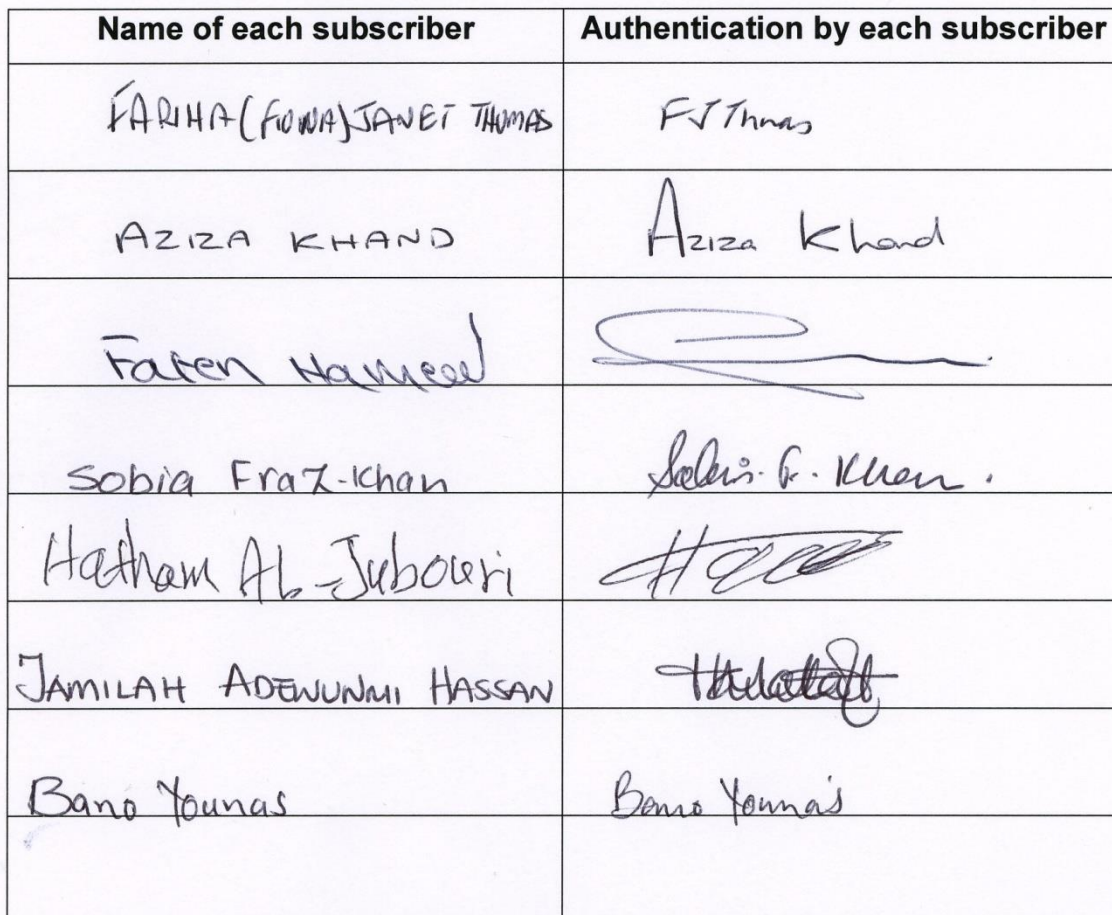 Name of each subscriber Authentication by each subscriber
FARIHA (FIONA) JANET THOMAS FJ Thomas
AZIZA KHAND Aziza Khand
Faten Hameed
Sobia Fraz-Khan F. Khan.
Haitham AL-Jubouri
JAMILAH ADEWUNMI HASSAN
Bano Younas Bano Younas